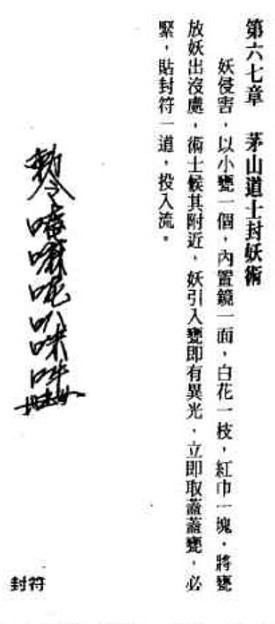 第六七章　茅山道士封妖術
妖侵害，以小甕一個，內置鏡一面，白花一枝，紅巾一塊，將甕
放妖出沒處，術士候其附近，妖引入甕即有異光，立即取蓋蓋甕，必
緊，貼封符一道，投入流。
勅令唵嘛呢叭咪吽
封符